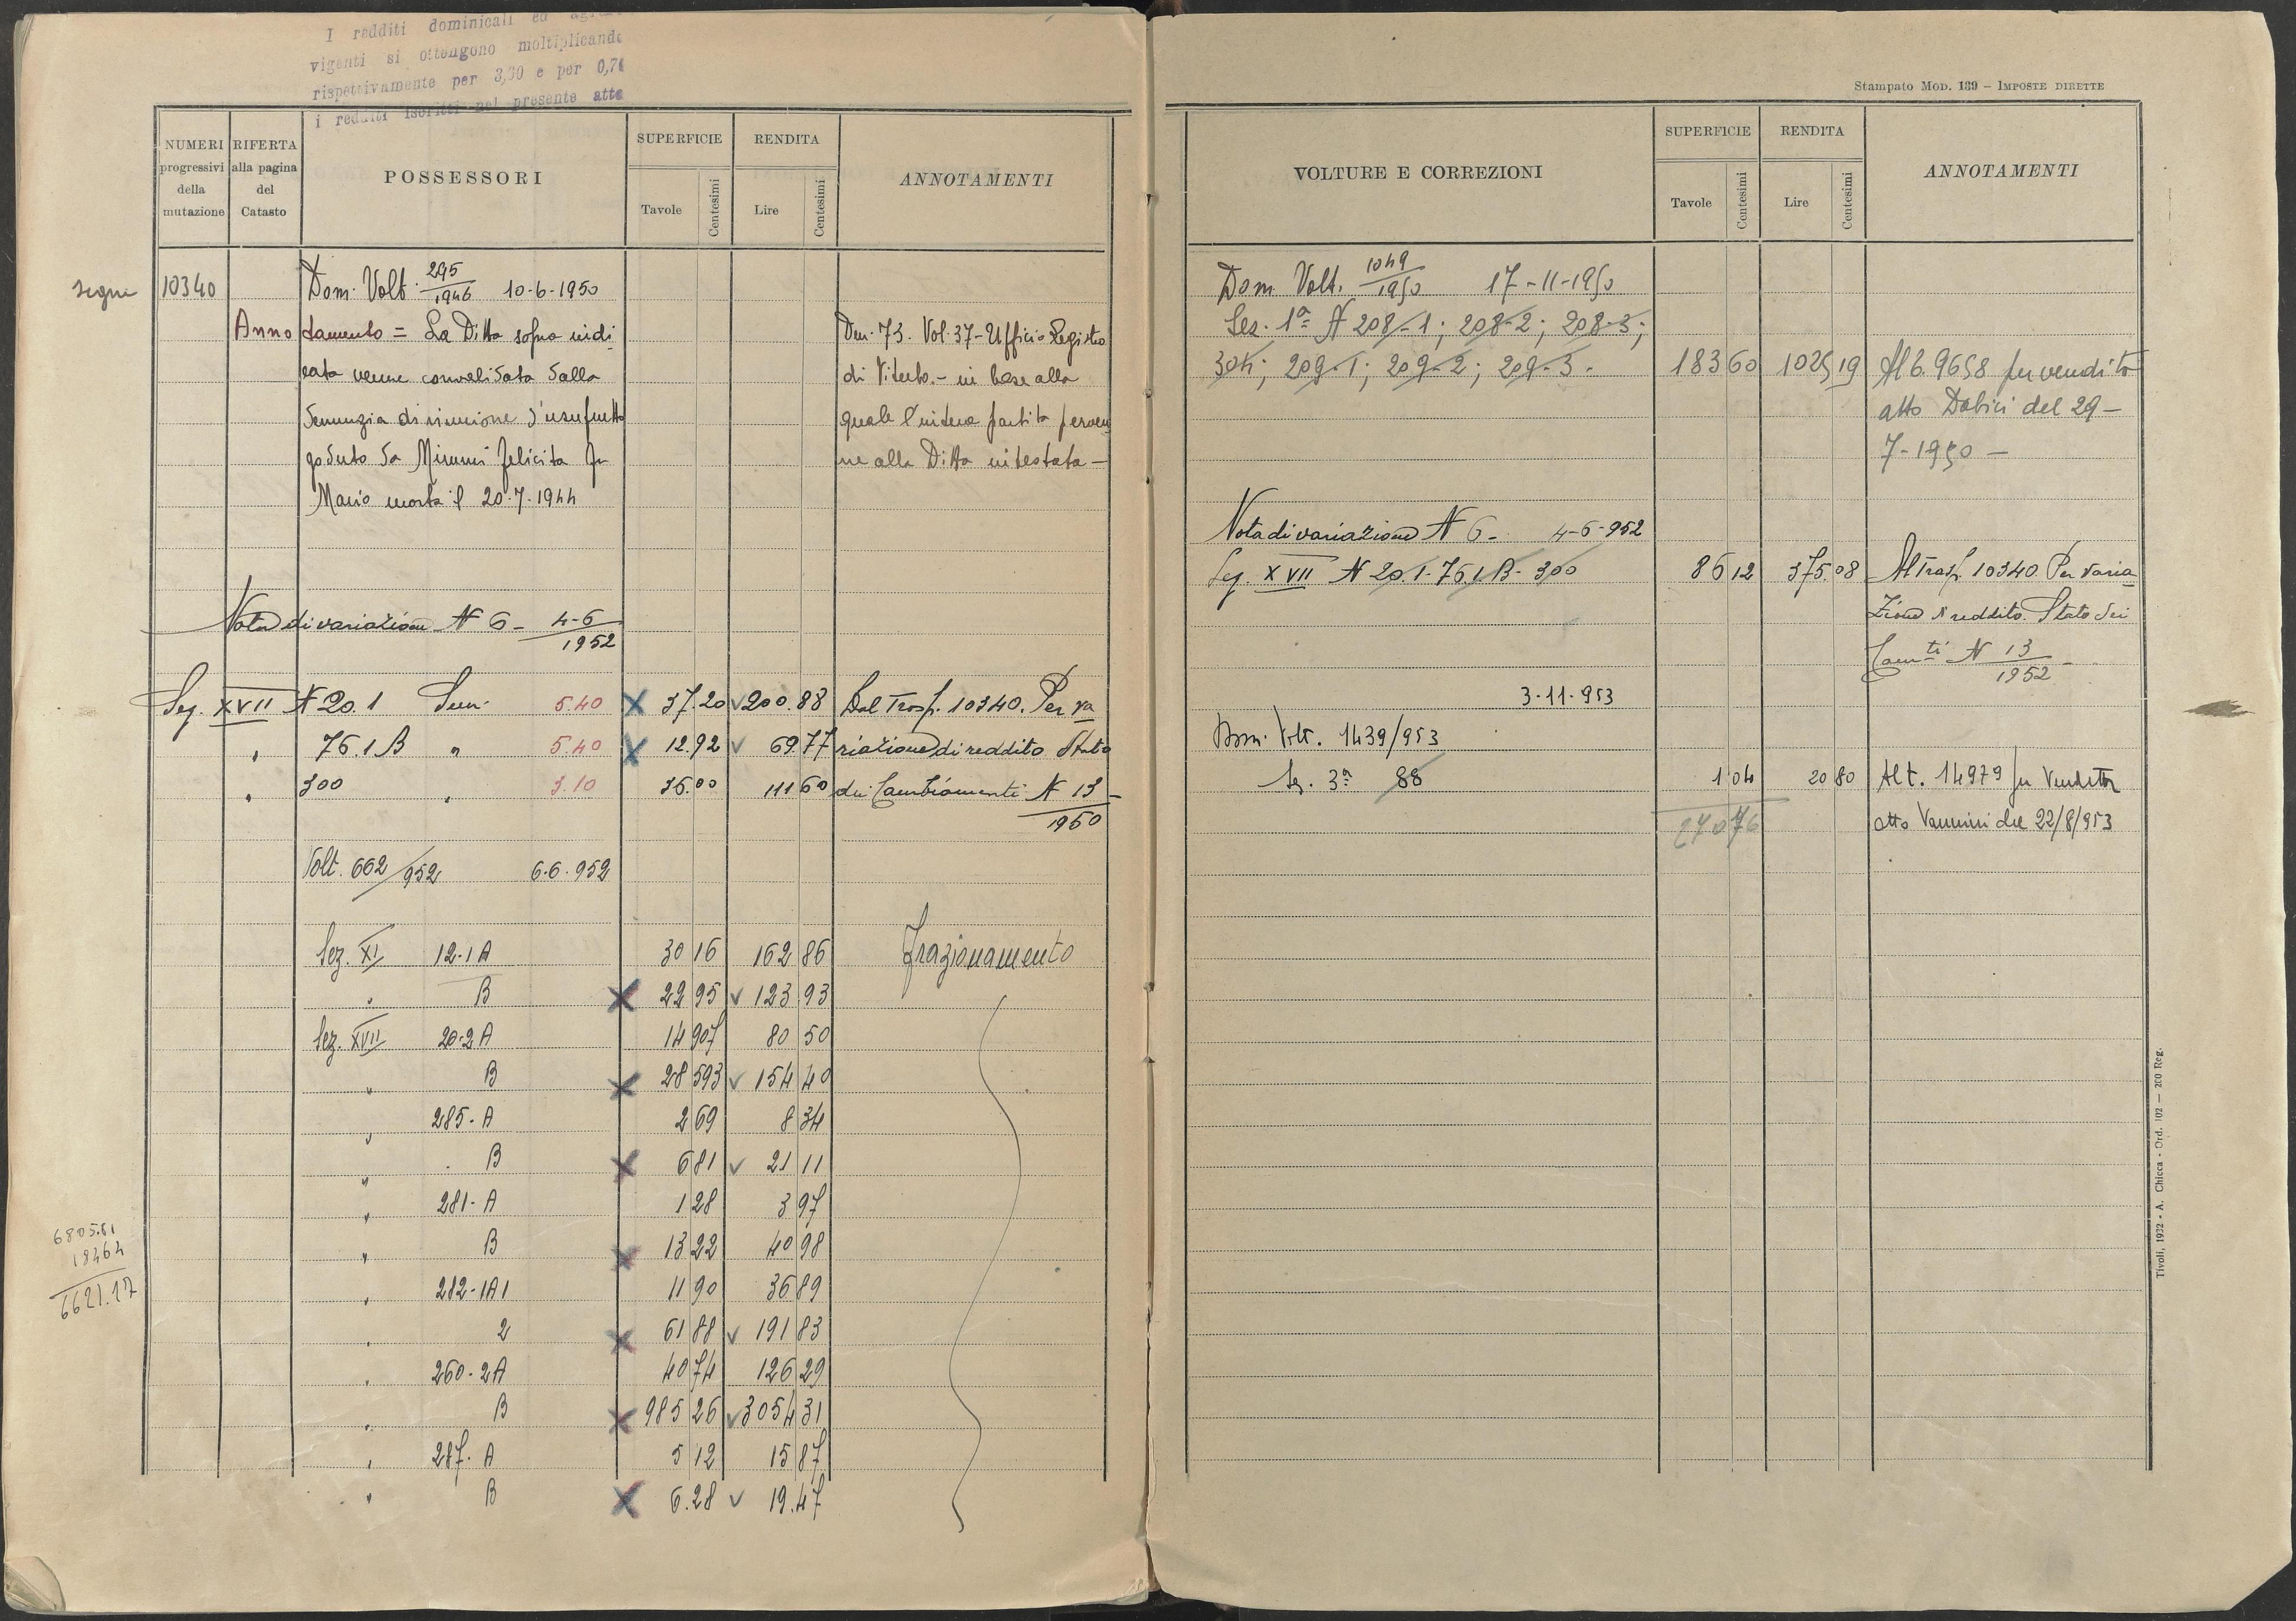 I redditi dominicali ed
vigenti si ottengono moltiplicando
rispettivamente per 3,60 e per 0,70
i redditi iscritti nel presente atto
NUMERI progressivi della mutazione
RIFERTA alla pagina del Catasto
POSSESSORI
SUPERFICIE
Tavole
Centesimi
RENDITA
Lire
Centesimi
ANNOTAMENTI
segue 10340 Dom. Volt. 295/1946 10-6-1950
Annotamento = La Ditta sopra indi
cata venne convalidata dalla
denunzia di riunione d'usufrutto
goduto da Minnni Felicita fu
Mario morta il 20.7.1944
Den. 73. Vol. 37 - Ufficio Registro
di Viterbo. - in base alla
quale l'intera partita perven
ne alla Ditta intestata -
Nota di variazione N 6 - 4-6/1952
Sez. XVII N 20.1 Sem. 5.40 37.20 200.88 Dal Trasp. 10340. Per va
" 76.1 B " 5.40 12.92 69.77 riazione di reddito Stato
" 300 " 3.10 36.00 111 60 dei Cambiamenti N 13 -
1950
Volt. 662/952 6.6.952
Sez. XI 12-1A 30 16 162 86 Frazionamento
" B 22 95 123 93
Sez. XVII 20-2 A 14 907 80 50
" B 28 593 154 40
" 285- A 2 69 8 34
" B 6 81 21 11
" 281- A 1 28 3 97
" B 13 22 40 98
" 282-1A1 11 90 36 89
" 2 61 88 191 83
" 260-2A 40 74 126 29
" B 985 26 3054 31
" 287- A 5 12 15 87
" B 6.28 19.47
6805.81
18464
6621.17
Stampato MOD. 139 – IMPOSTE DIRETTE
VOLTURE E CORREZIONI
SUPERFICIE
Tavole
Centesimi
RENDITA
Lire
Centesimi
ANNOTAMENTI
Dom Volt. 1049/1950 17-11-1950
Sez. 1ª N 208-1; 208-2; 208-3;
304; 209-1; 209-2; 209-3. 183 60 1025 19 Al t. 9658 per vendita
atto Dobici del 29-
7-1950 -
Nota di variazione N 6 - 4-6-952
Sez. XVII N 20.1-76.1 B- 300 86 12 375.08 Al Trasp. 10340 Per varia
zione di reddito. Stato dei
Camti N 13/1952 -
3-11-953
Dom. Volt. 1439/953
Sz. 3ª 88 1 04 20 80 Al t. 14979 per Vendita
270 76 atto Vannini del 22/8/953
Tivoli, 1932 - A. Chicca - Ord. 102 — 200 Reg.